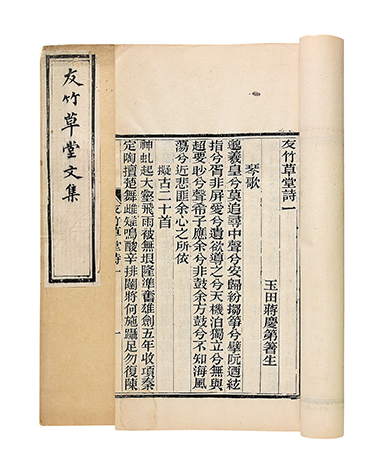 友竹草堂文集
友竹草堂詩一
玉田蔣慶第箸生
琴歌
邈羲皇兮莫追尋中聲兮安歸紛搊箏兮擘阮迺絃
指兮胥非屏愛兮遺欲導之兮天機泊獨立兮無與
超要眇兮聲希子應余兮非鼓余方鼓兮不知海風
蕩兮近悲匪余心之所依
擬古二十首
神虬起大壑飛雨被無垠隆準奮雄劍五年收項秦
定陶擅楚舞雌雉鳴酸辛排闥將何施躡足勿復陳
友竹草堂詩一 一